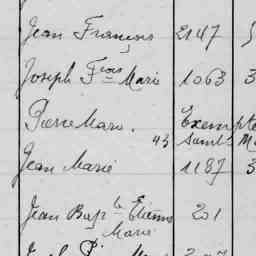 Jean François 2147 5
Joseph Fçois Marie 1063 3
Pierre Marie. Exempté
43
Jean Marie 1187 3
Jean Bapte Etienne 201
Marie